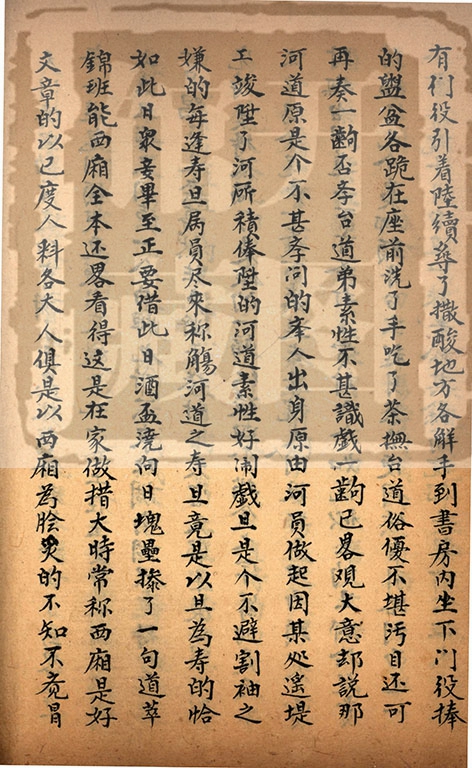 有们役引着陸續尋了撒酸地方各解手到書房内坐下门役捧
的盥盆各跪在座前洗了手吃了茶撫台道俗優不堪污目还可
再奏一齣否斈台道弟素性不甚識戯一齣已畧观大意却說那
河道原是个不甚斈问的夲人出身原由河員做起因某处遥堤
工竣陞了河所積俸陞的河道素性好闹戯旦是个不避割袖之
嫌的每逢寿旦属員尽來称觴河道之寿旦竟是以旦為寿的恰
如此日眾妾畢至正要借此日酒盃澆向日塊壘搀了一句道萃
錦班能西廂全本还畧看得这是在家做措大時常称西廂是好
文章的以己度人料各大人俱是以西廂為膾炙的不知不竟冒